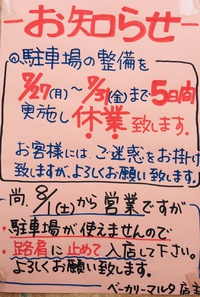 お知らせ
の駐車場の整備を
8/27(月)～8/31(金)まで5日間
実施し休業致します.
お客様には、ご迷惑をお掛け
致しますが、よろしくお願い致します.
尚、9/1(土)から営業ですが
・駐車場が使えませんので
・路肩に止めて入店して下さい。
よろしくお願い致します。
ベーカリーマルタ 店主